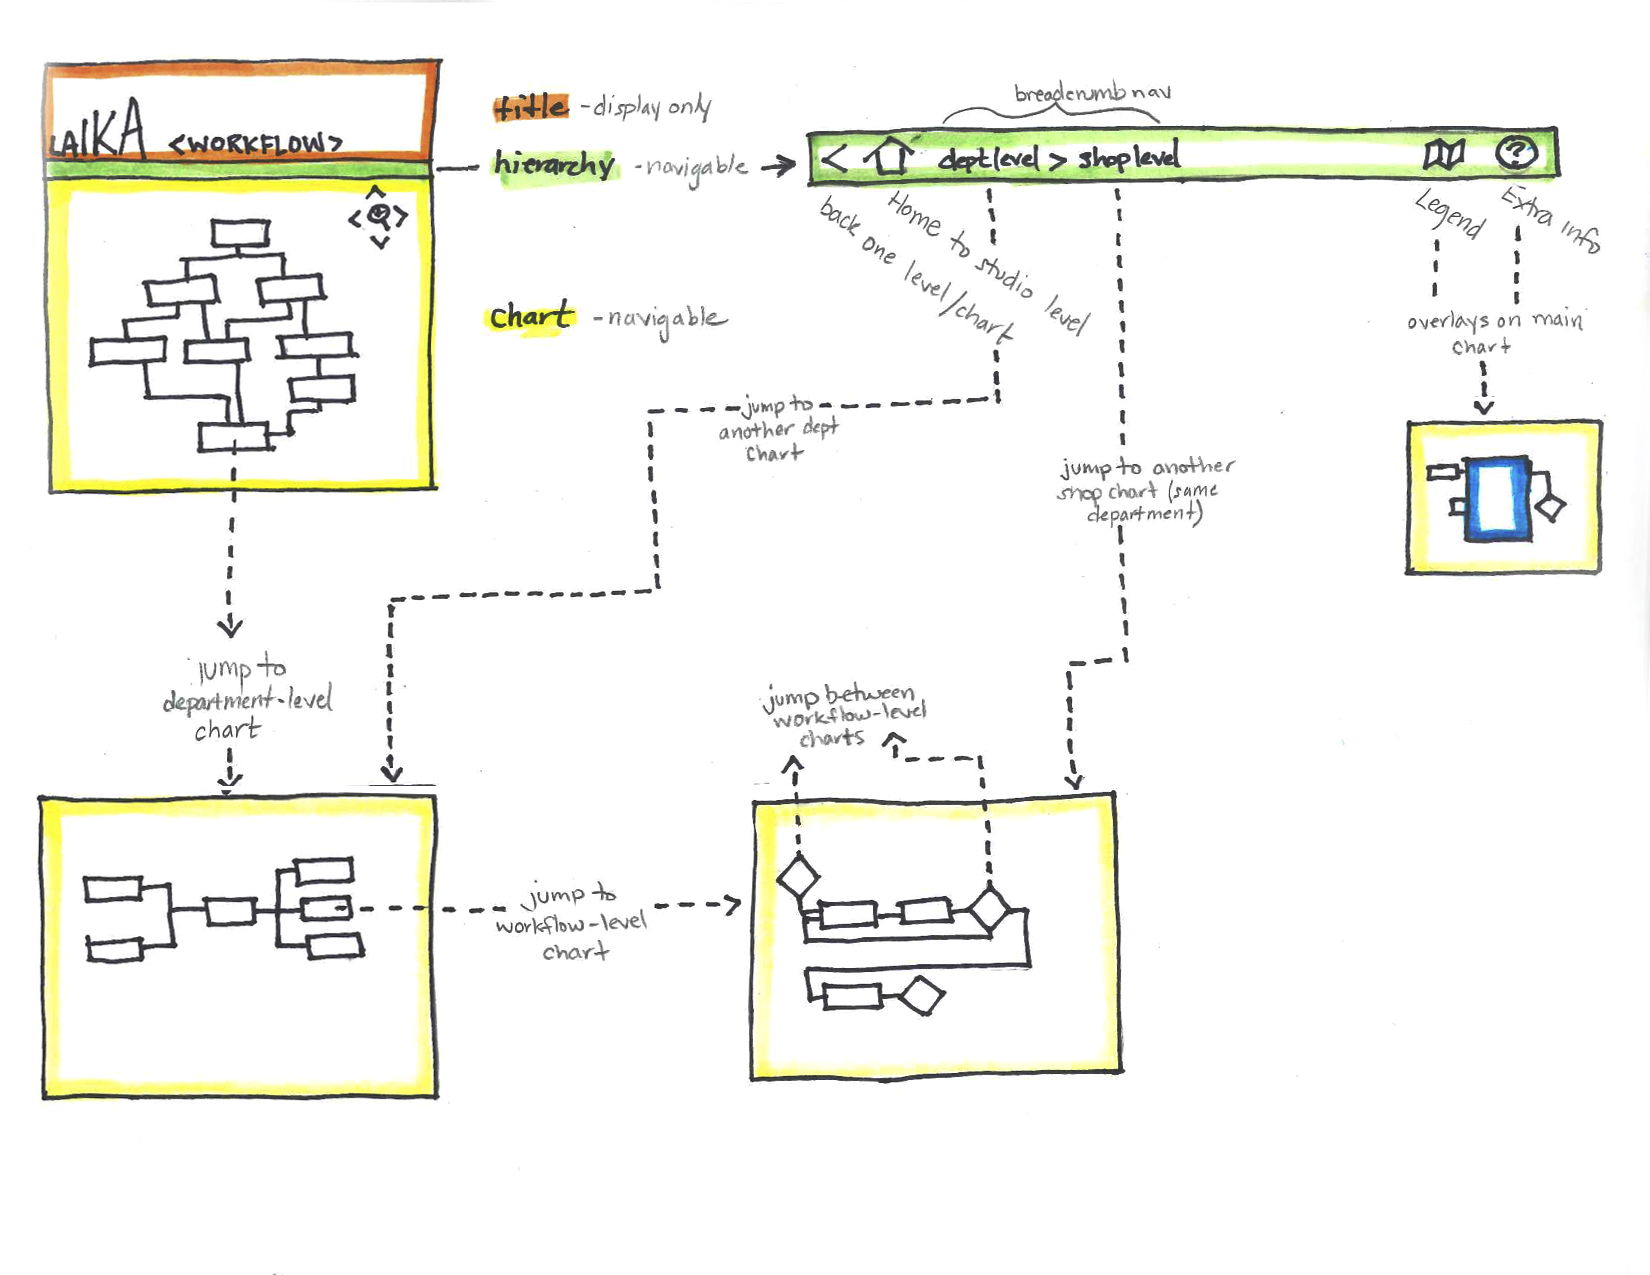 LAIKA <WORKFLOW>
title - display only
hierarchy - navigable
chart - navigable
breadcrumb nav
< dept level > shop level ?
back one level/chart
Home to studio level
Legend
Extra info
overlays on main
chart
jump to
another dept
chart
jump to another
shop chart (same
department)
jump to
department-level
chart
jump between
workflow-level
charts
jump to
workflow-level
chart